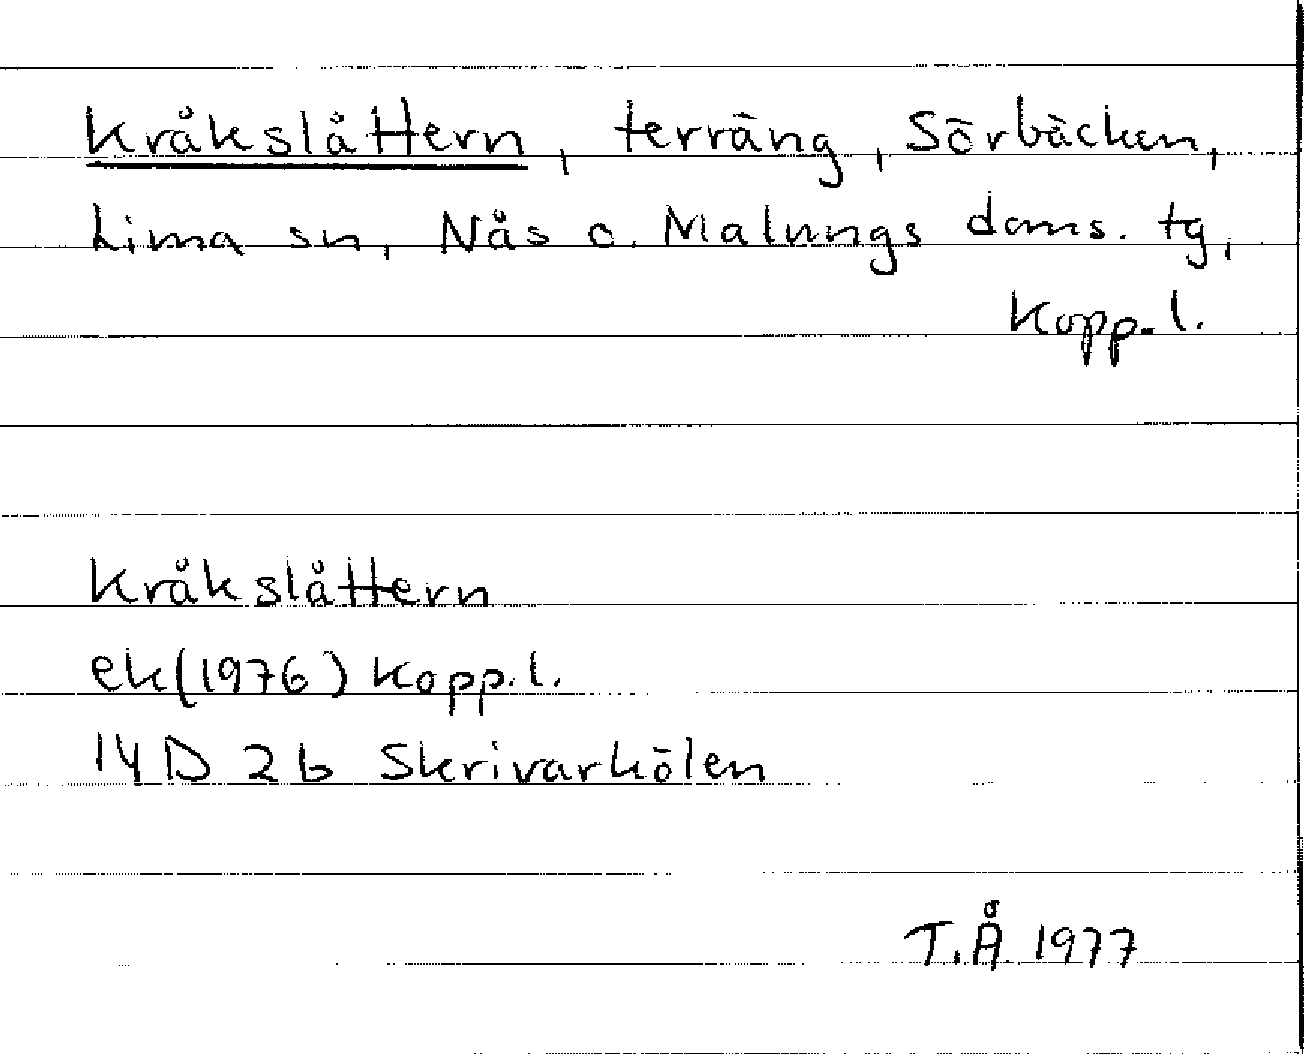 Kråkslåttern, terräng, Sörbäcken,
Lima sn, Nås o. Malungs doms. tg,
Kopp. l.
Kråkslåttern
ek (1976) Kopp. l.
14 D 2 b Skrivarkölen
T.Å. 1977